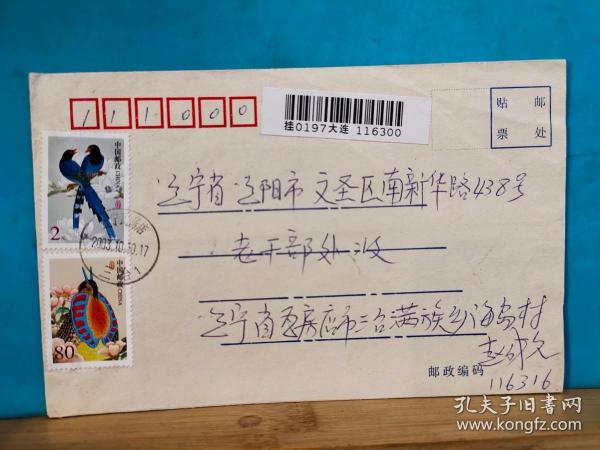 111000
挂0197大连 116300
贴 邮
票 处
中国邮政 CHINA
2
2003.10.30.17
中国邮政 CHINA
80
辽宁省辽阳市文圣区南新华路438号
老干部处 收
辽宁省瓦房店市三台满族乡海岛村
赵
邮政编码
116316
孔夫子旧书网
www.kongfz.com